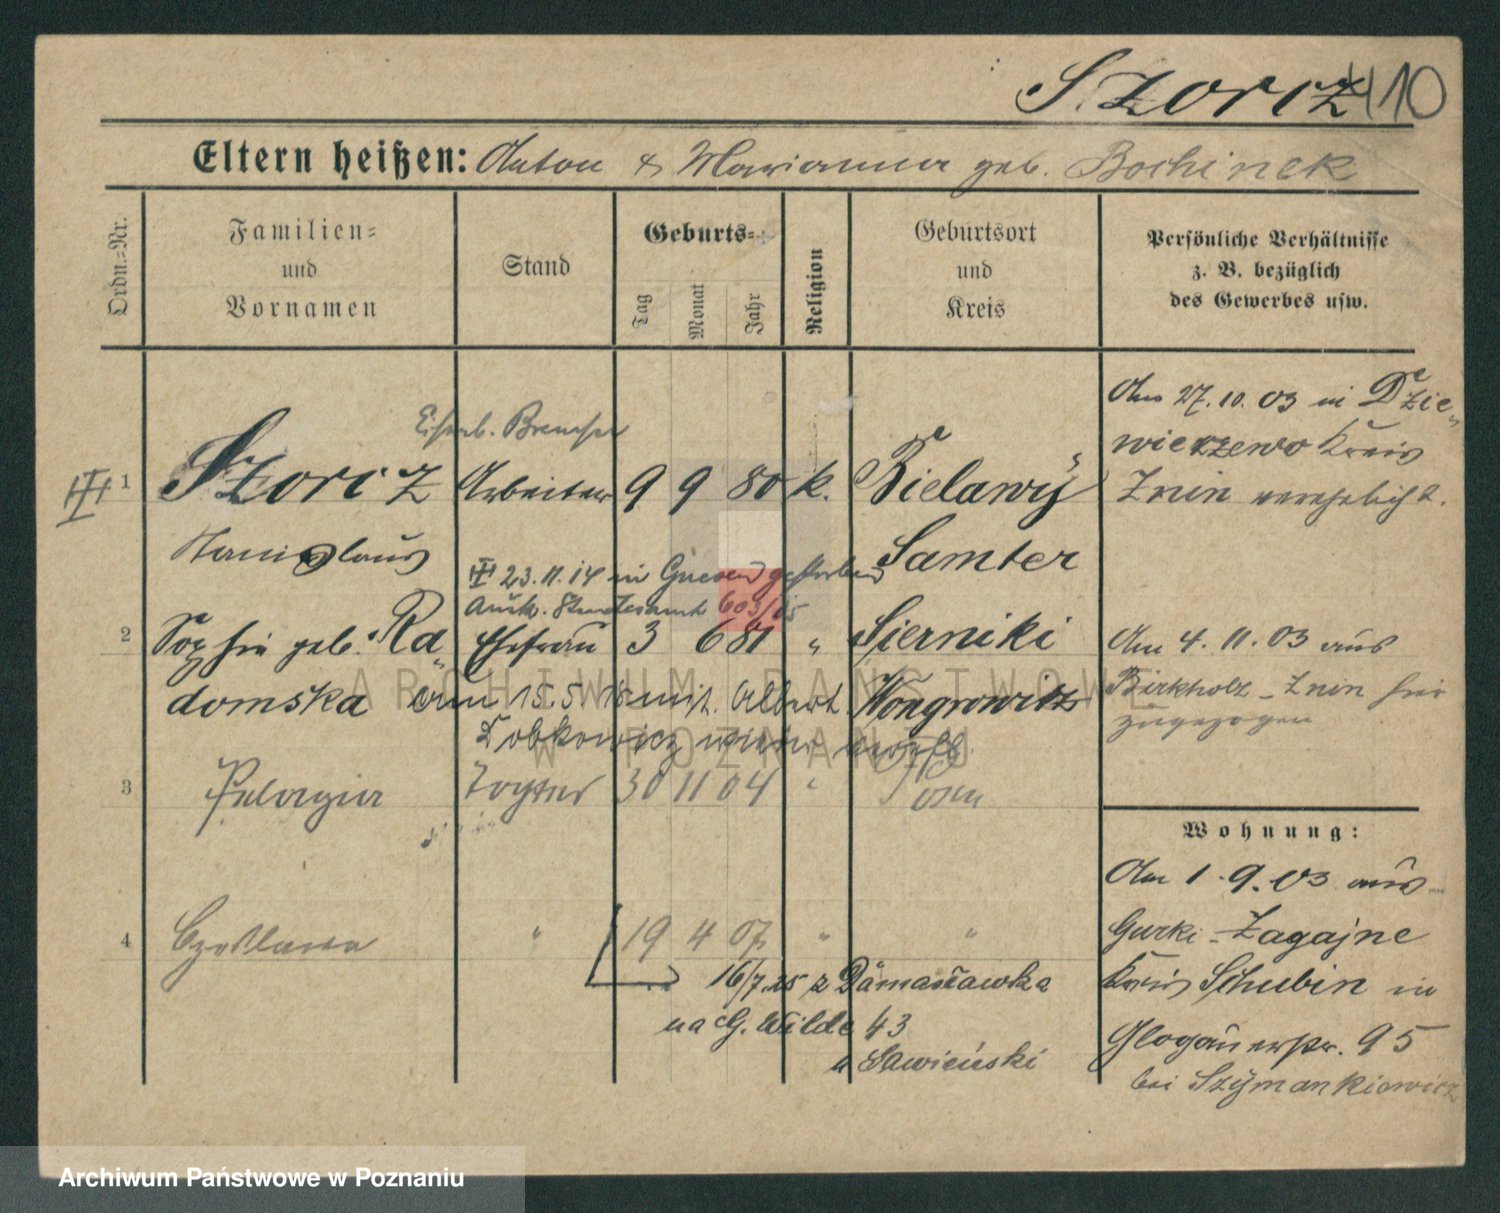 Szorcz 410
Eltern heißen: Anton & Marianna geb. Bochinek
Ordn.-Nr.
Familien- und Vornamen
Stand
Geburts-
Tag Monat Jahr
Religion
Geburtsort und Kreis
Persönliche Verhältnisse
z. B. bezüglich
des Gewerbes usw.
Eisenb. Bremser
1 Szorcz Arbeiter 9 9 80 k. Bielawy
Stanislaus Samter
23.11.14 in Gnesen gestorben
Ausk. Standesamt 603/15
2 Sophie geb. Ra Ehefrau 3 6 81 " Sierniki
domska am 15.5.18 mit Albert Wongrowitz
Dobkowicz wieder verehl.
3 Pelagia Tochter 30 11 04 " Posen
4 Czeslawa " 19 4 07 " "
16/7.25 z Damasławka
na G. Wilde 43
u Sawieński
Am 27.10.03 in Dzie-
wierzewo Kreis
Znin verehelicht.
Am 4.11.03 aus
Birkholz - Znin hier
zugezogen
Wohnung:
Am 1.9.03 aus
Gurki-Zagajne
Kreis Schubin in
Glogauerstr. 95
bei Szymankiewicz
ARCHIWUM PAŃSTWOWE
W POZNANIU
Archiwum Państwowe w Poznaniu